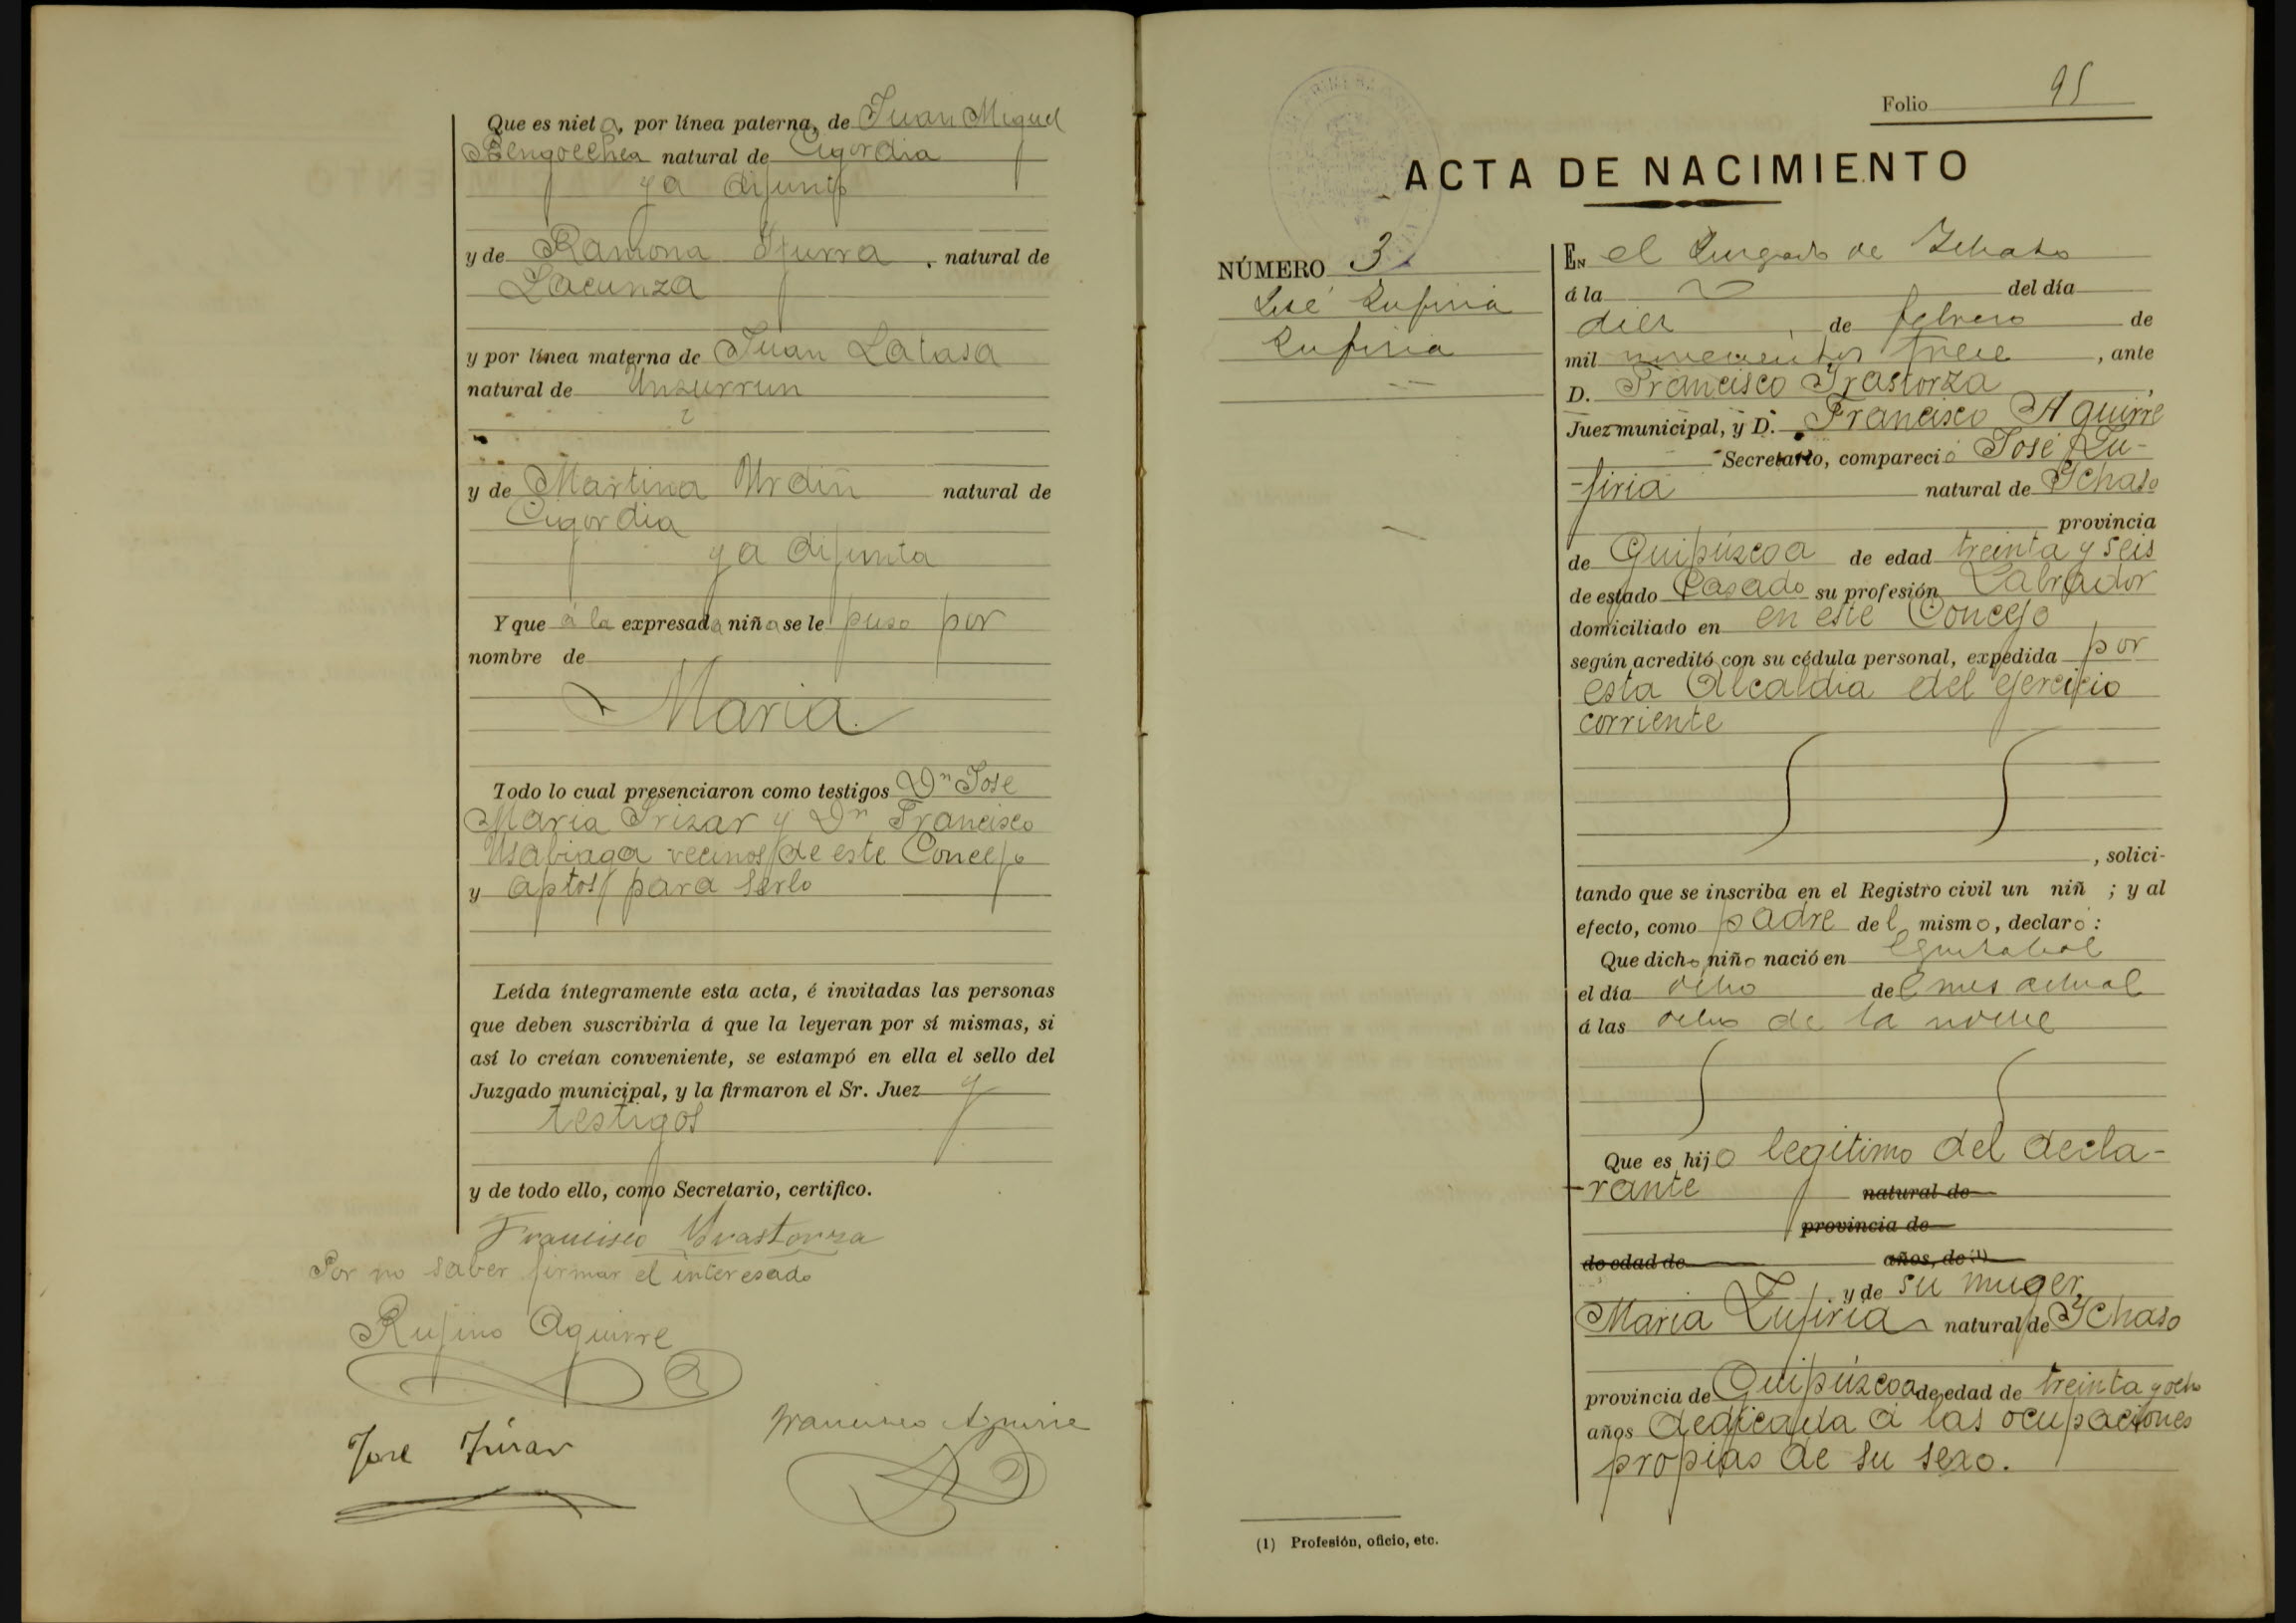 Que es nieta, por línea paterna, de Juan Miguel
Bengoechea natural de Cigordia
ya difunto
y de Ramona Yturra, natural de
Lacunza
y por línea materna de Juan Latasa
natural de Unzurrun
y de Martina Urdin natural de
Cigordia
ya difunta
Y que á la expresada niña se le puso por
nombre de
Maria.
Todo lo cual presenciaron como testigos Dn Jose
Maria Irizar y Dn Francisco
Usabiaga vecinos de este Concejo
y aptos para serlo
Leída íntegramente esta acta, é invitadas las personas
que deben suscribirla á que la leyeran por sí mismas, si
así lo creían conveniente, se estampó en ella el sello del
Juzgado municipal, y la firmaron el Sr. Juez y
testigos
y de todo ello, como Secretario, certifico.
Francisco Yrastorza
Por no saber firmar el interesado
Rufino Aguirre
Jose Irizar
Francisco Aguirre
Folio 95
ACTA DE NACIMIENTO
NÚMERO 3
José Zufiria
Zufiria
EN el Juzgado de Ichaso
á la del día
diez de febrero de
mil novecientos trece, ante
D. Francisco Yrastorza,
Juez municipal, y D. Francisco Aguirre
Secretario, compareció José Zu-
-firia natural de Ychaso
provincia
de Guipúzcoa de edad treinta y seis
de estado Casado su profesión Labrador
domiciliado en en este Concejo
según acreditó con su cédula personal, expedida por
esta Alcaldia del ejercicio
corriente
, solici-
tando que se inscriba en el Registro civil un niñ ; y al
efecto, como padre del mismo, declaró:
Que dicho niño nació en
el día ocho del mes actual
á las ocho de la noche
Que es hijo legitimo del decla-
-rante natural de
provincia de
de edad de años, de (1)
y de su muger,
Maria Zufiria natural de Ychaso
provincia de Guipúzcoa de edad de treinta y ocho
años dedicada á las ocupaciones
propias de su sexo.
(1) Profesión, oficio, etc.